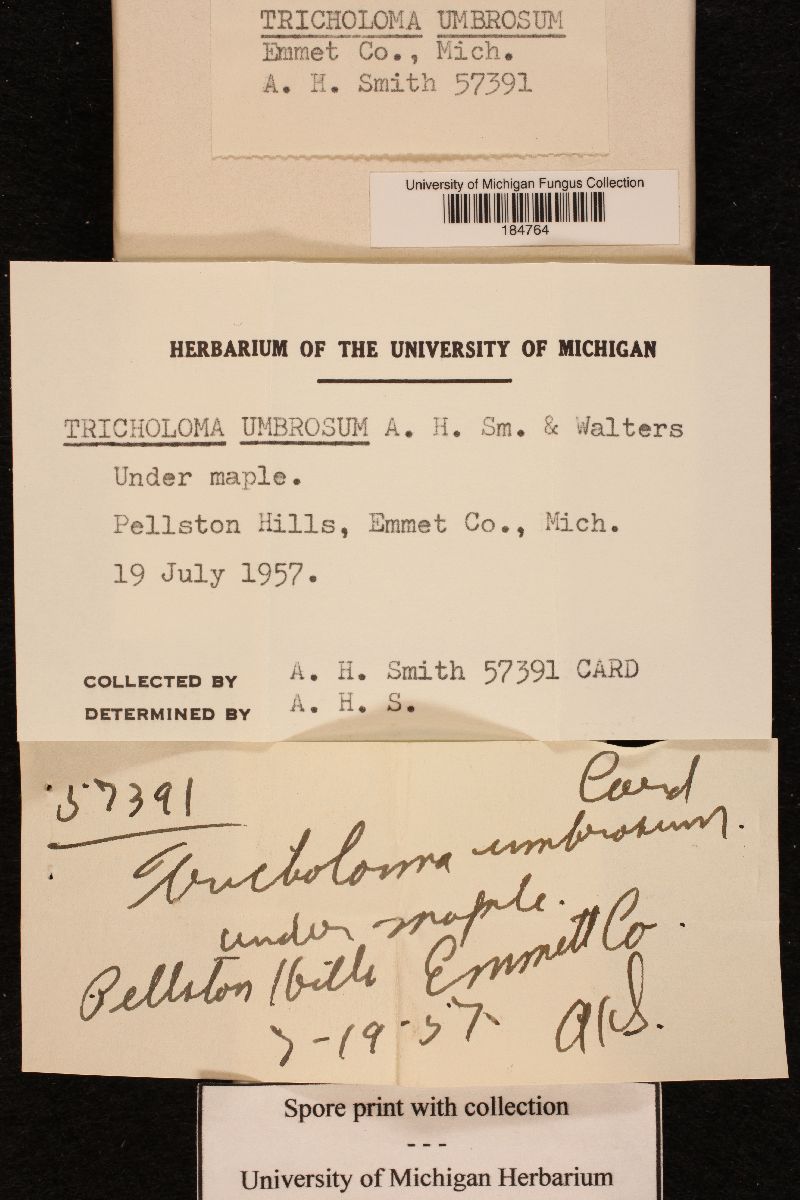 TRICHOLOMA UMBROSUM
Emmet Co., Mich.
A. H. Smith 57391
University of Michigan Fungus Collection
184764
HERBARIUM OF THE UNIVERSITY OF MICHIGAN
TRICHOLOMA UMBROSUM A. H. Sm. & Walters
Under maple.
Pellston Hills, Emmet Co., Mich.
19 July 1957.
COLLECTED BY A. H. Smith 57391 CARD
DETERMINED BY A. H. S.
57391 Card
Tricholoma umbrosum.
under maple.
Pellston Hills Emmett Co.
7-19-57 AHS.
Spore print with collection
---
University of Michigan Herbarium